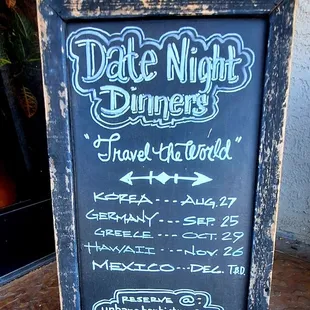 Date Night
Dinners
"Travel the World"
KOREA --- AUG. 27
GERMANY --- SEP. 25
GREECE --- OCT. 29
HAWAII --- NOV. 26
MEXICO --- DEC. TBD
RESERVE @: